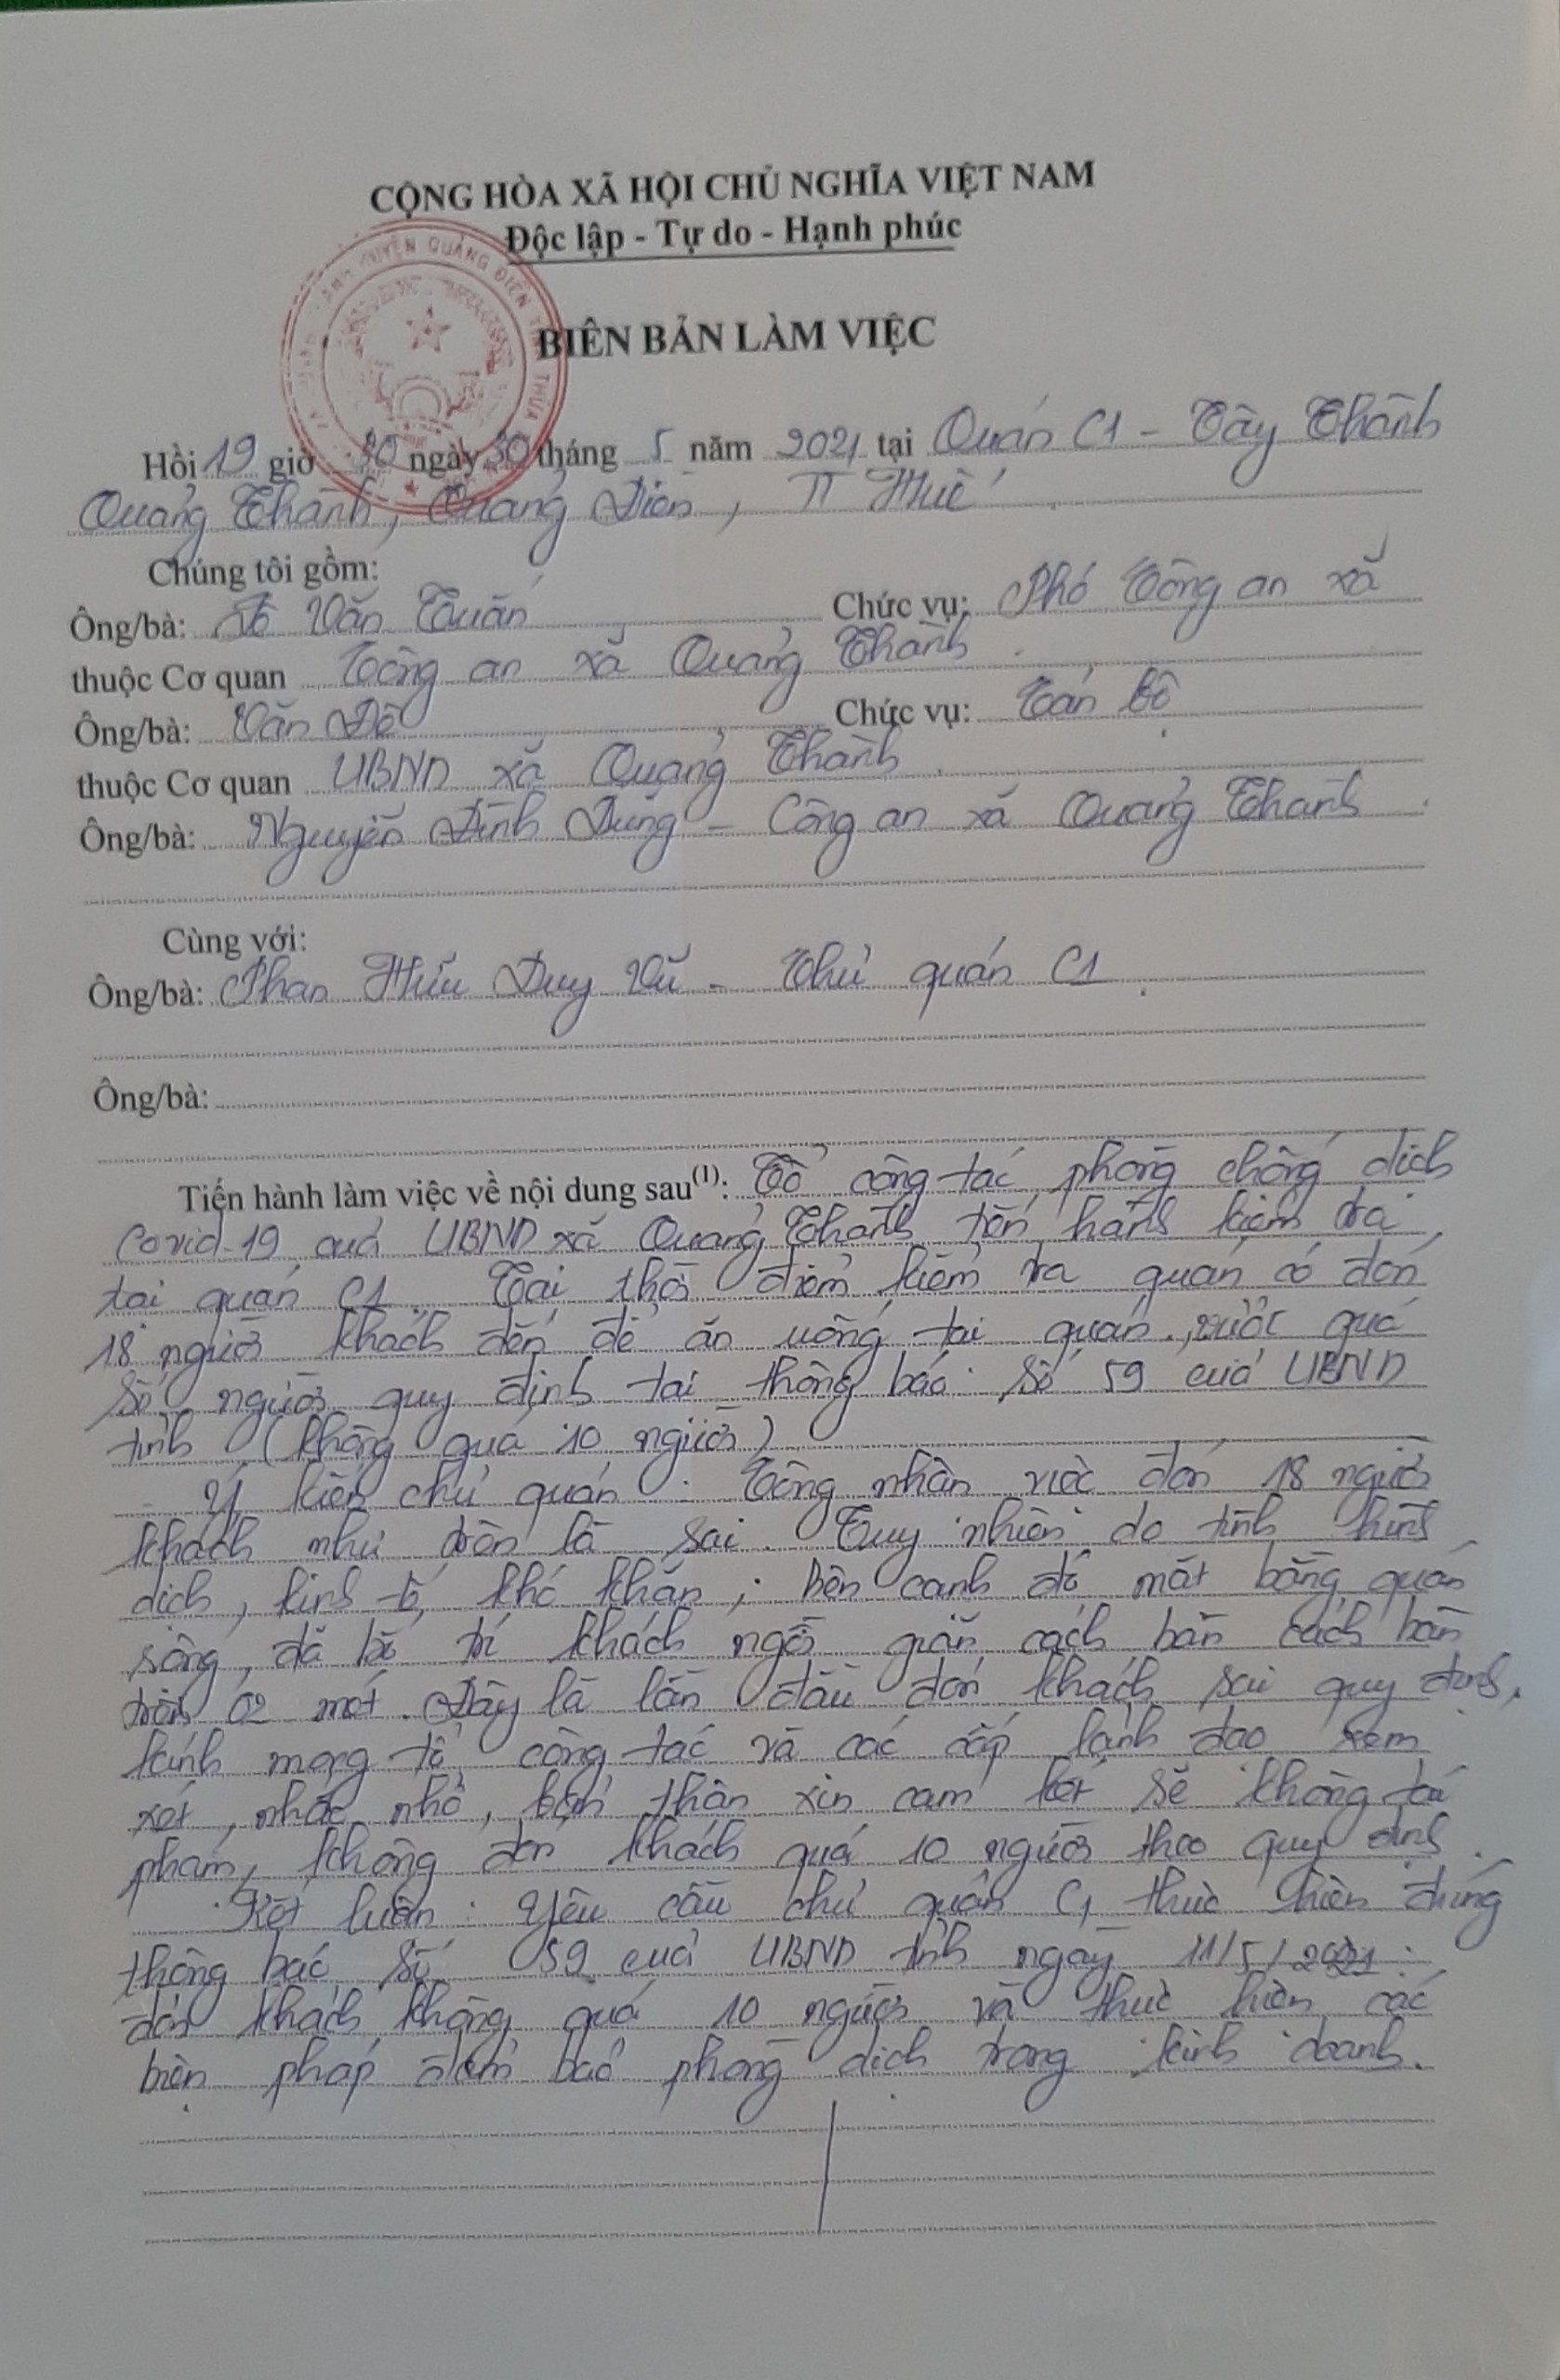 CỘNG HÒA XÃ HỘI CHỦ NGHĨA VIỆT NAM
Độc lập - Tự do - Hạnh phúc
BIÊN BẢN LÀM VIỆC
Hồi 19 giờ 30 ngày 30 tháng 5 năm 2021 tại Quán C1 - Tây Thành
Quảng Thành, Quảng Điền, TT Huế
Chúng tôi gồm:
Ông/bà: Văn Tuấn Chức vụ: Phó Công an xã
thuộc Cơ quan Công an xã Quảng Thành
Ông/bà: Văn Đệ Chức vụ: Cán bộ
thuộc Cơ quan UBND xã Quảng Thành
Ông/bà: Nguyễn Đình Dũng - Công an xã Quảng Thành
Cùng với:
Ông/bà: Phan Hữu Duy Vũ - Chủ quán C1
Ông/bà:
Tiến hành làm việc về nội dung sau(1): Tổ công tác phòng chống dịch
Covid-19 của UBND xã Quảng Thành tiến hành kiểm tra
tại quán C1. Tại thời điểm kiểm tra quán có đón
18 người khách đến để ăn uống tại quán, vượt quá
số người quy định tại thông báo số 59 của UBND
tỉnh (không quá 10 người)
- Ý kiến chủ quán: Công nhận việc đón 18 người
khách như trên là sai. Tuy nhiên do tình hình
dịch, kinh tế khó khăn; bên cạnh đó mặt bằng quán
rộng, đã bố trí khách ngồi giãn cách bàn cách bàn
trên 02 mét. Đây là lần đầu đón khách sai quy định,
kính mong tổ công tác và các cấp lãnh đạo xem
xét, nhắc nhở, bản thân xin cam kết sẽ không tái
phạm, không đón khách quá 10 người theo quy định.
Kết luận: Yêu cầu chủ quán C1 thực hiện đúng
thông báo số 59 của UBND tỉnh ngày 11/5/2021
đón khách không quá 10 người và thực hiện các
biện pháp đảm bảo phòng dịch trong kinh doanh.